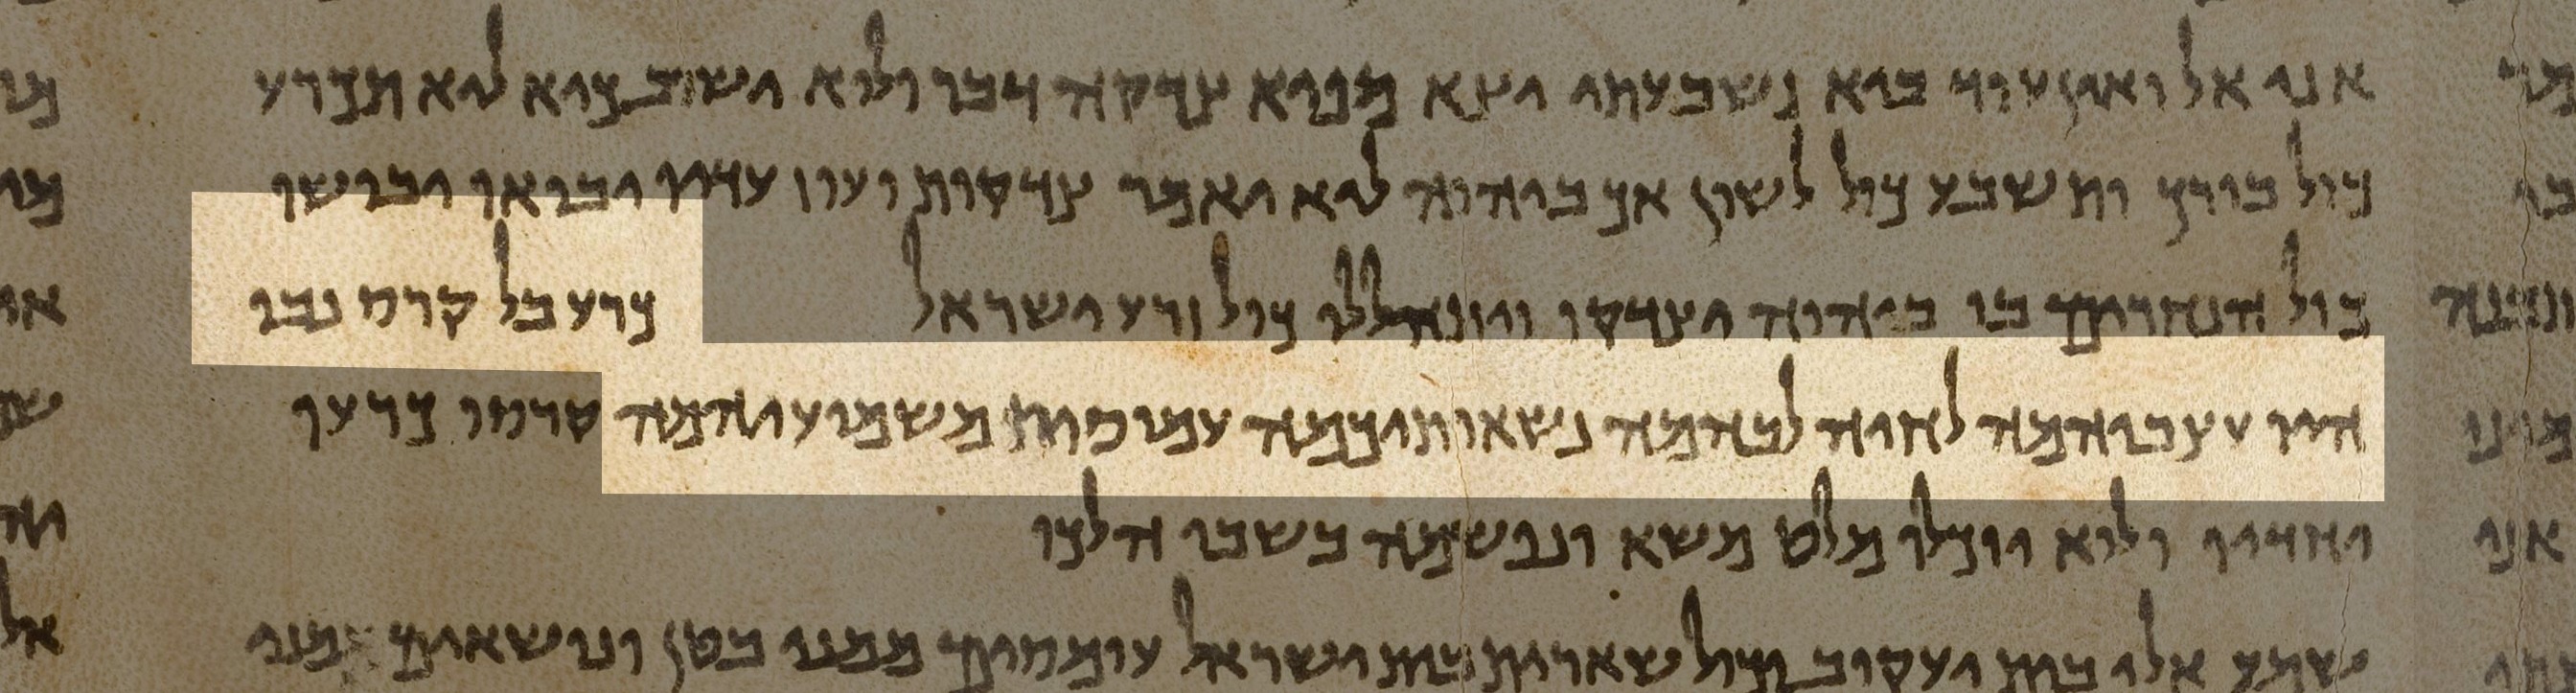 אני אל ואין עוד ביא נשבעתי יצא מפיא צדקה דבר ולוא ישוב כיא ליא תכרע
כול בורך ותשבע כול לשון אך ביהוה ליא יאמר צדקות ועוז עדיו יבואו ויבושו
כול הנחרים בו ביהוה יצדקו ויתהללו כול זרע ישראל כרע בל קרס נבו
היו עצביהמה לחיה לבהמה נשאותיכמה עמוסות משמיעיהמה קרסו כרעו
יחדיו ולוא יוכלו מלט משא ונפשמה בשבי הלכו
שמעו אלי בית יעקוב וכול שארית בית ישראל עומסים ממני בטן ונושאים ממני